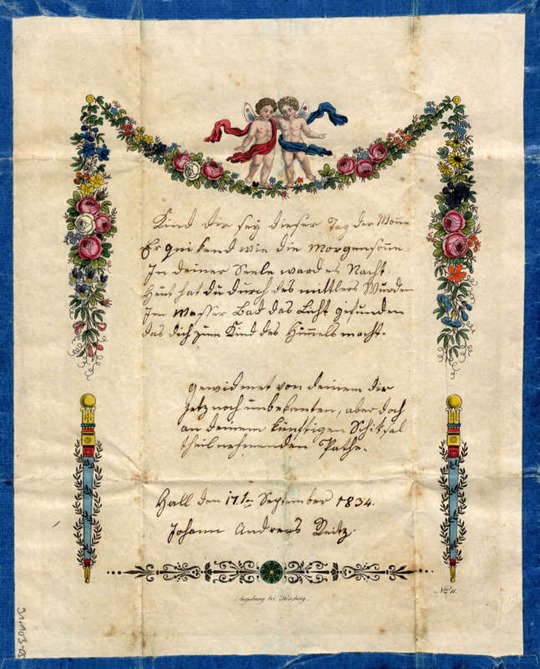 Kind dir sey dieser Tag der Wone
Er qui kend wie die Morgensone
In deiner Seele ward es Nacht
Heut hat du durch des mittlers Wunden
Im Wasser Bad das Licht gefunden
das dich zum Kind des Himmels macht.
gewidmet von deinem dir
Jetz noch unbekanten, aber doch
an deinem künftigen Schiksal
theilnehmenden Pathe.
Hall den 17ten September 1834.
Johann Andreas
Augsburg bei Herzberg.
No. 11.